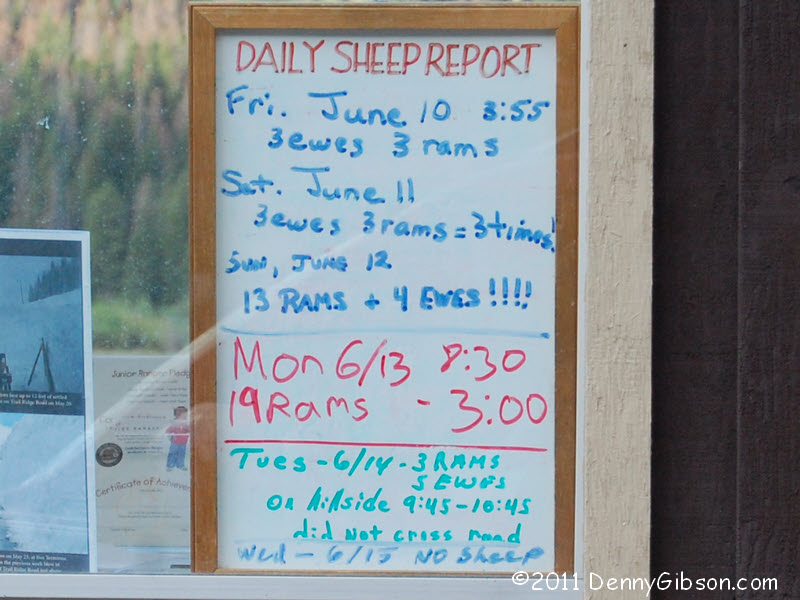 DAILY SHEEP REPORT
Fri. June 10 3:55
3 ewes 3 rams
Sat. June 11
3 ewes 3 rams = 3 times!
SUN, JUNE 12
13 RAMS + 4 EWES !!!!
Mon 6/13 8:30
19 Rams - 3:00
Tues - 6/14 - 3 RAMS
5 EWES
On hillside 9:45 - 10:45
did not cross road
Wed - 6/15 NO Sheep
Junior Ranger Pledge
Certificate of Achievem
on Trail Ridge Road on May 20.
©2011 DennyGibson.com